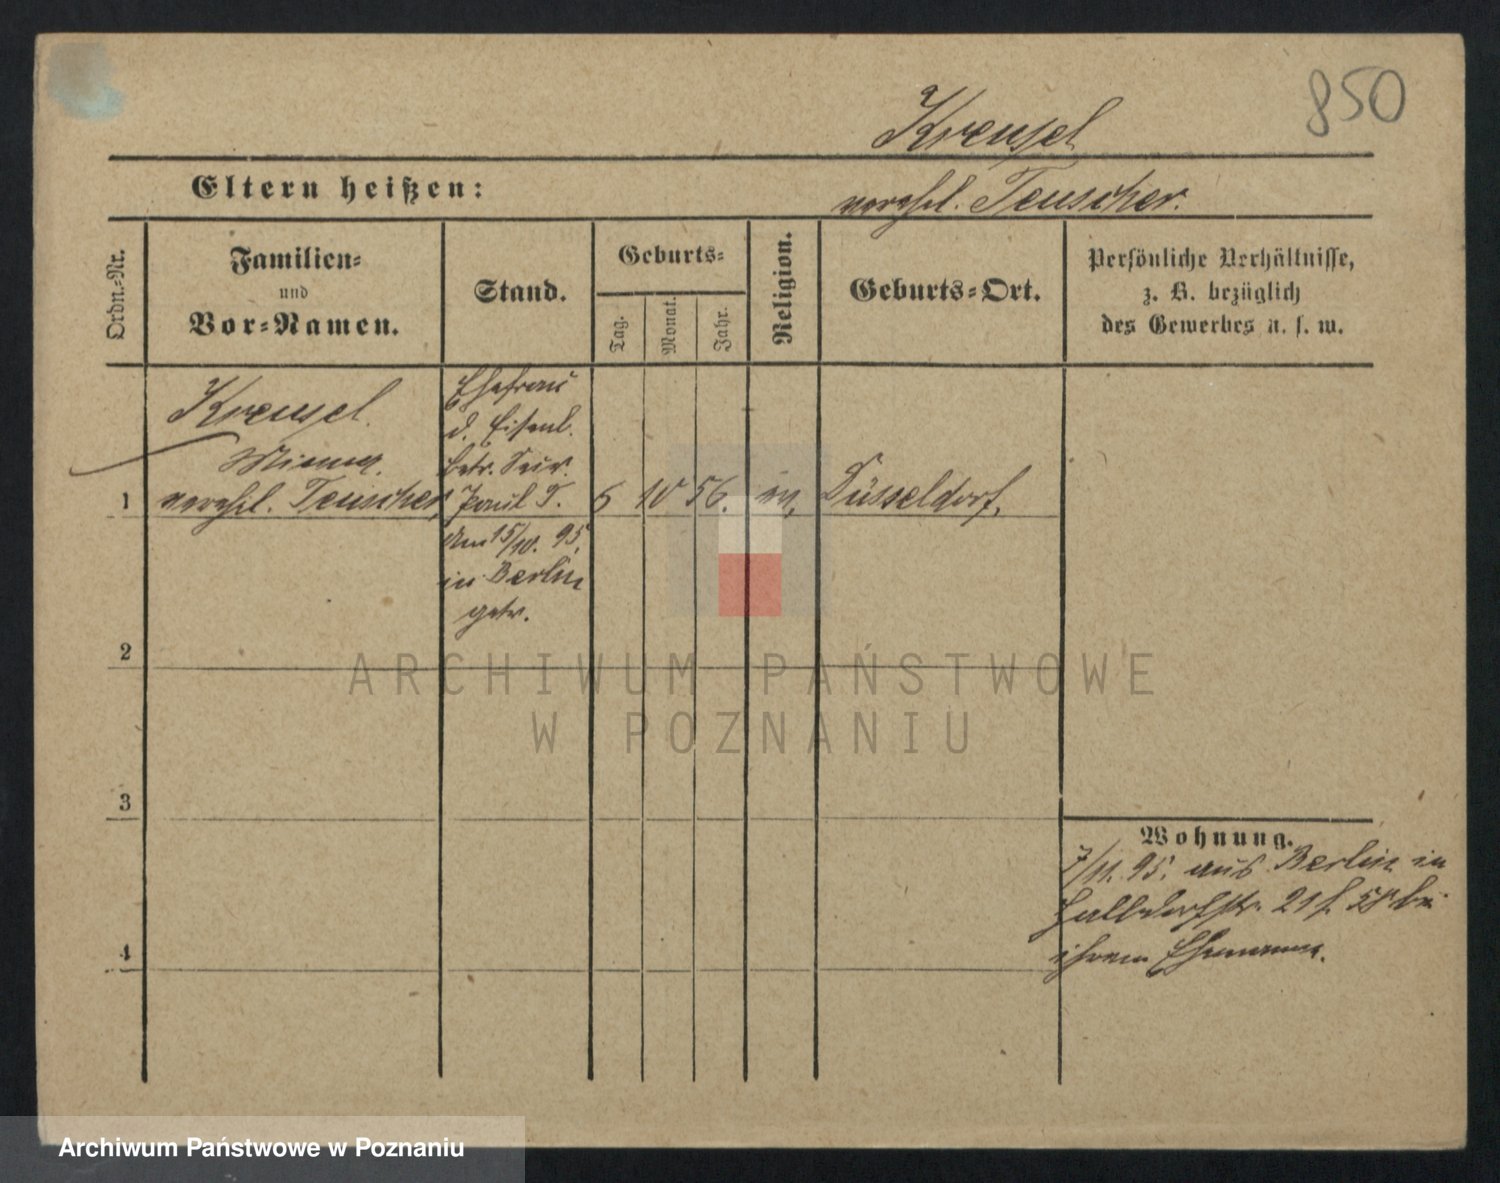 850
Kreusel
verehel. Teuscher.
Eltern heißen:
Ordn.-Nr.
Familien-
und
Vor-Namen.
Stand.
Geburts-
Tag.
Monat.
Jahr.
Religion.
Geburts-Ort.
Persönliche Verhältnisse,
z. B. bezüglich
des Gewerbes u. s. w.
1
Kreusel.
Minna.
verehel. Teuscher,
Ehefrau
d. Eisenb.
Betr.
Paul T.
am 15/10. 95.
in Berlin
getr.
6
10
56.
ev.
Düsseldorf.
2
3
4
Wohnung.
7/11. 95. aus Berlin in
Halbdorfstr. 21 b.
ihrem Ehemanne.
ARCHIWUM PAŃSTWOWE
W POZNANIU
Archiwum Państwowe w Poznaniu